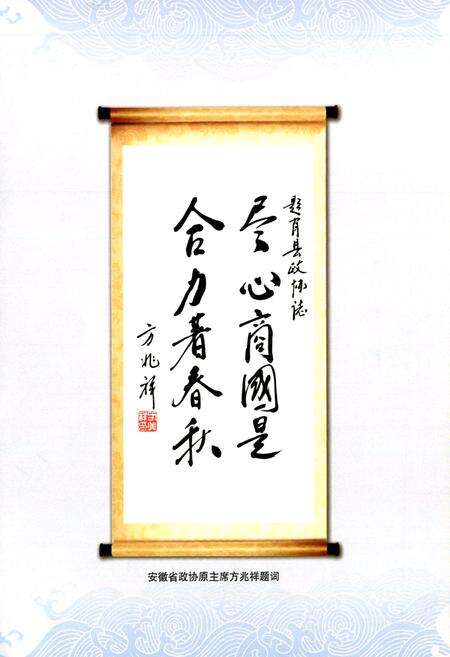 题肖县政协志
尽心商國是
合力著春秋
方兆祥
安徽省政协原主席方兆祥题词